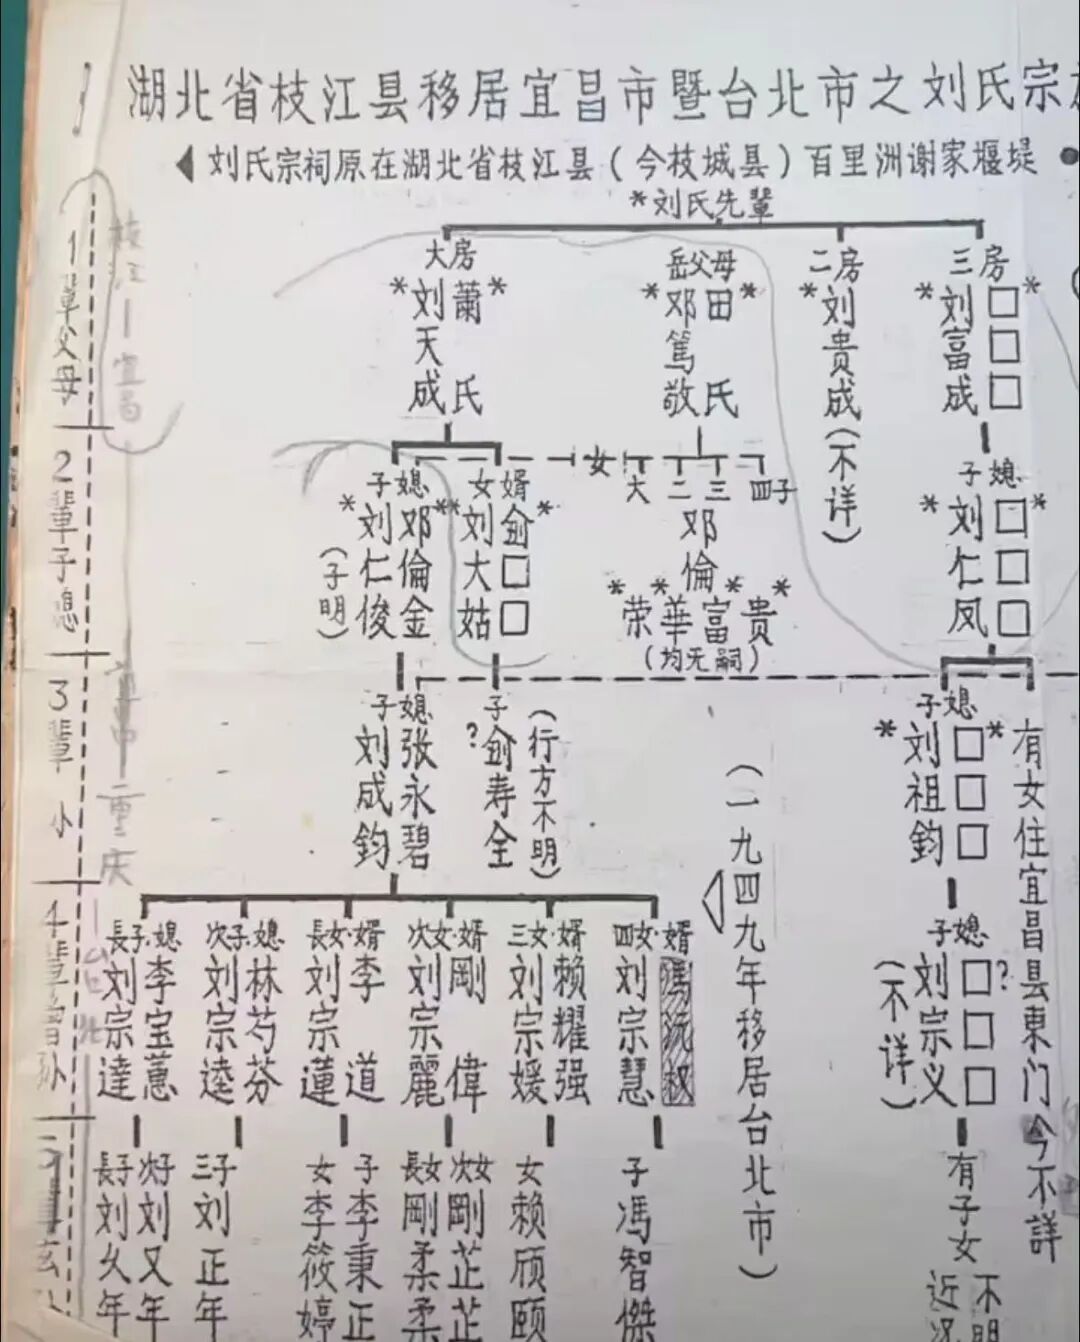 湖北省枝江县移居宜昌市暨台北市之刘氏宗
◀刘氏宗祠原在湖北省枝江县(今枝城县)百里洲谢家堰堤●
*刘氏先辈
1辈父母
大房
*刘天成
萧氏*
岳父母
*邓篤敬
田氏*
二房
*刘贵成(不详)
三房
*刘富成
□□□*
2辈子媳
子媳
*刘仁俊
(子明)
邓倫金*
女婿
*刘大姑
俞□□*
女
大 二 三 四子
邓倫
*荣*華*富*贵
(均无嗣)
子媳
*刘仁凤
□□□*
3辈 小
子媳
刘成鈞
张永碧
子
?俞寿全
(行方不明)
(一九四九年移居台北市)
子媳
*刘祖鈞
□□□*
有女住宜昌县東门今不詳
4辈曾孙
長子·媳
刘宗達
李宝蕙
次子·媳
刘宗逵
林芍芬
長女·婿
刘宗蓮
李道
次女·婿
刘宗麗
剛偉
三女·婿
刘宗媛
赖耀强
四女·婿
刘宗慧
子媳
刘宗义
(不详)
□□□?
長子
刘久年
次子
刘又年
三子
刘正年
女
李筱婷
子
李秉正
長女
剛柔柔
次女
剛芷芷
女
赖颀颐
子
馮智傑
有子女
近况不明
枝江—宜昌
重庆